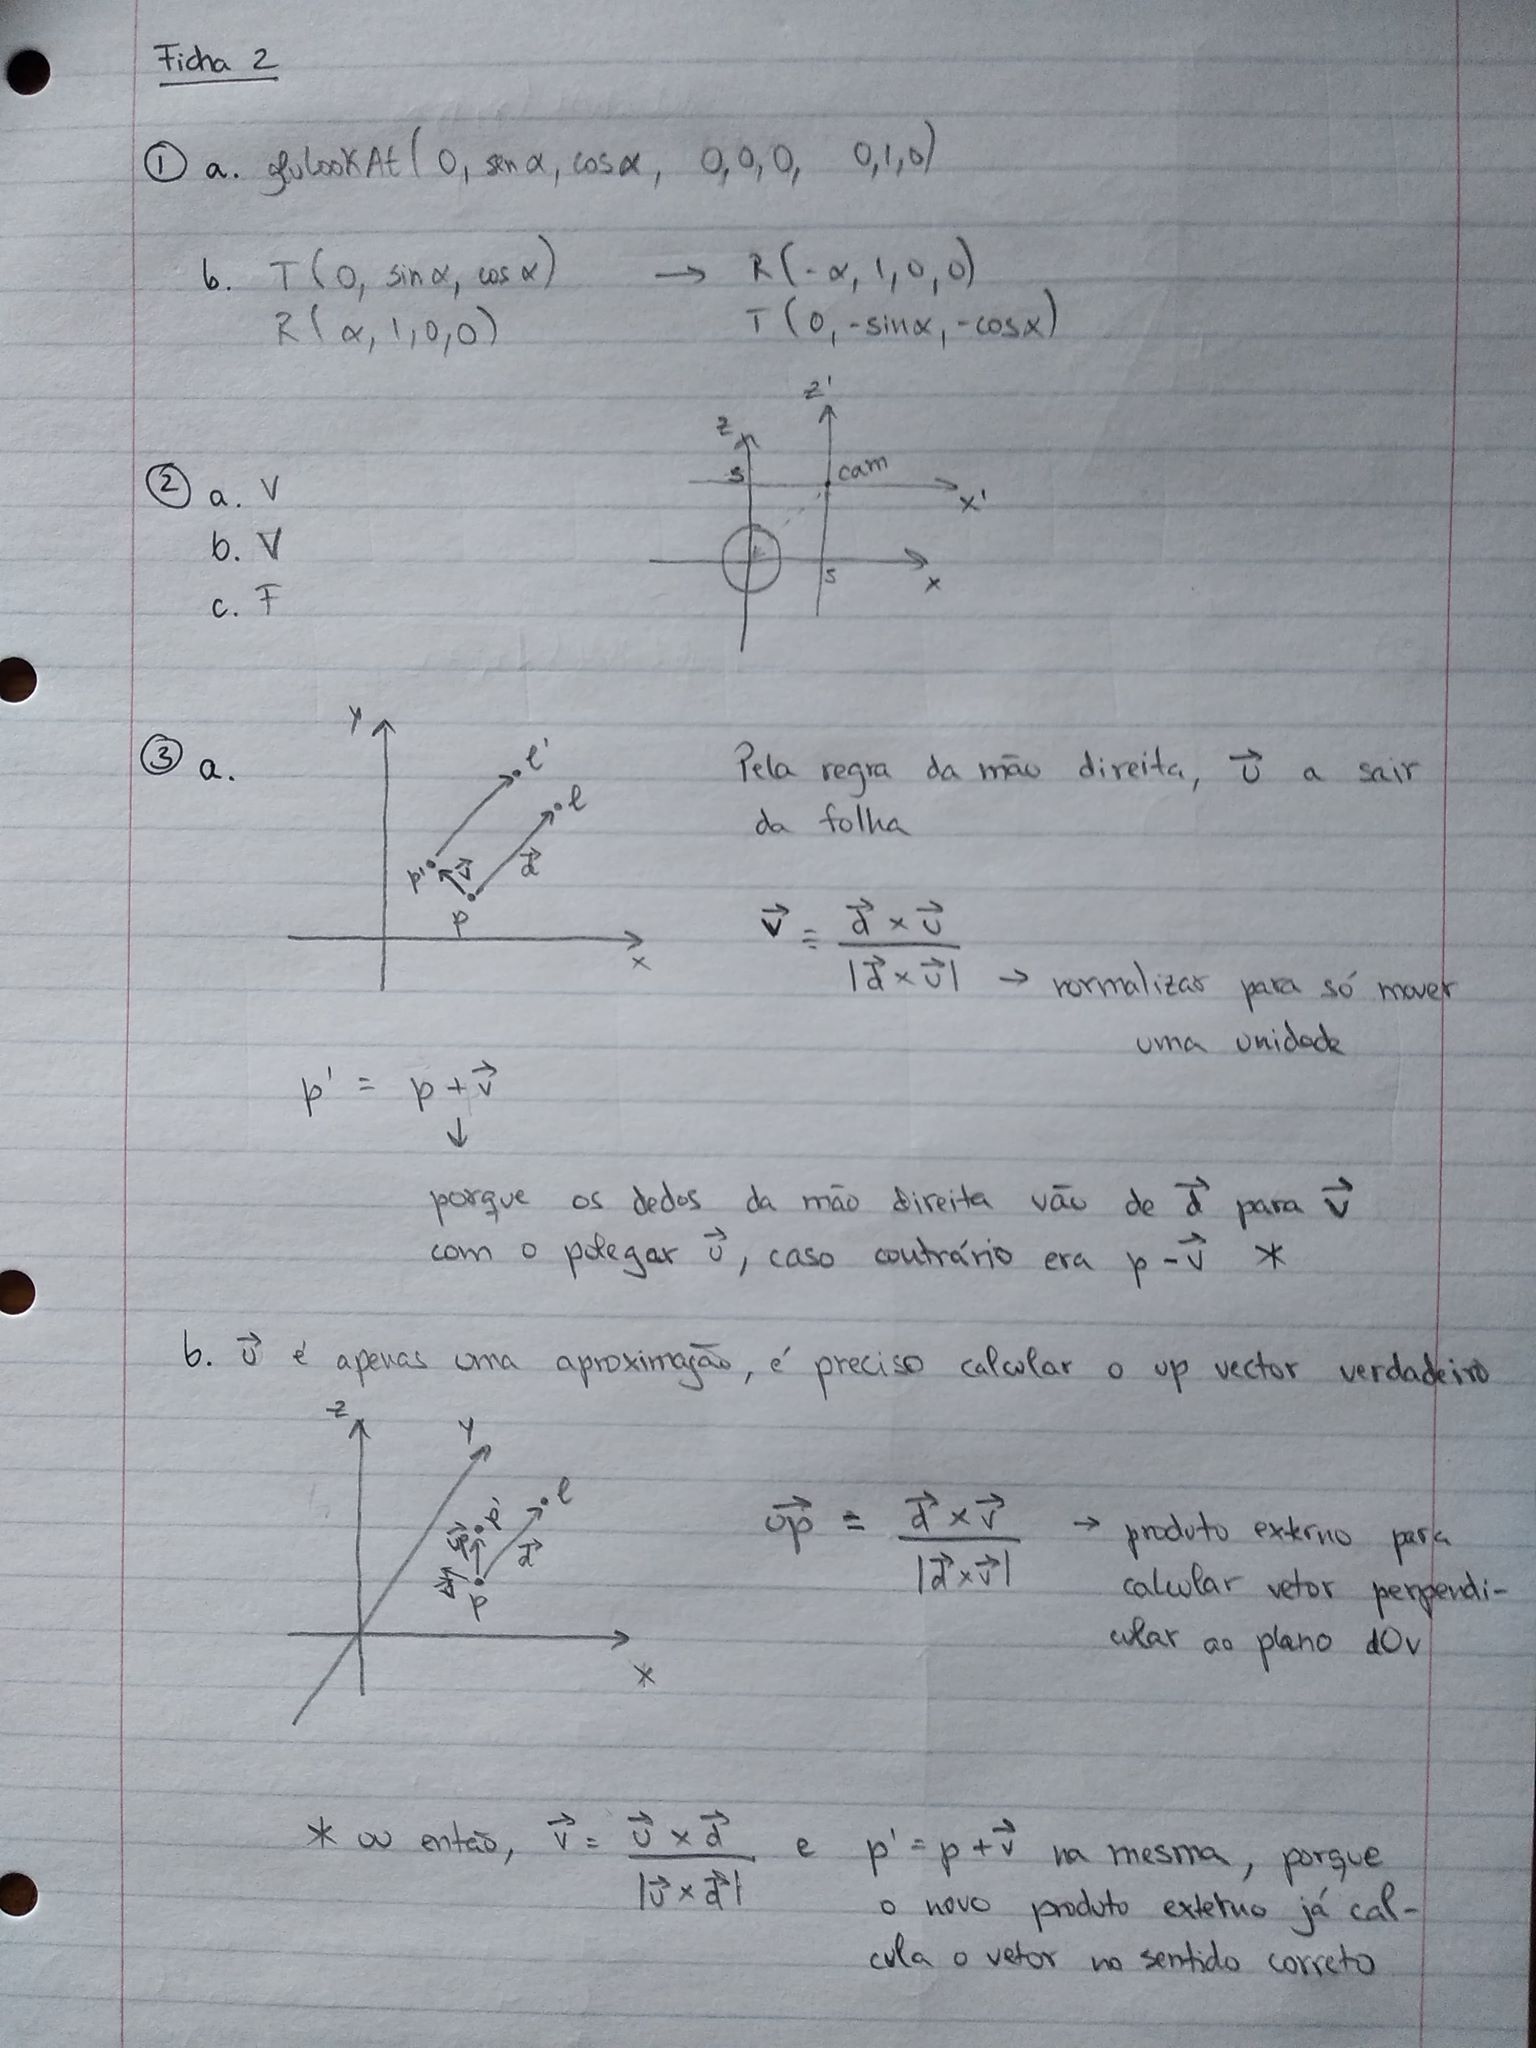 Ficha 2
① a. gluLookAt(0, sen α, cos α, 0,0,0, 0,1,0)
b. T(0, sin α, cos α) → R(-α, 1, 0, 0)
R(α, 1, 0, 0) T(0, -sin α, -cos α)
z'
z
s cam
x'
s x
② a. V
b. V
c. F
③ a.
y
l'
l
p' v⃗ d⃗
p
x
Pela regra da mão direita, u⃗ a sair
da folha
v⃗ = (d⃗ × u⃗) / |d⃗ × u⃗| → normalizar para só mover
uma unidade
p' = p + v⃗
↓
porque os dedos da mão direita vão de d⃗ para v⃗
com o polegar u⃗, caso contrário era p - v⃗ *
b. u⃗ é apenas uma aproximação, é preciso calcular o up vector verdadeiro
z y
l
p'
up⃗ d⃗
v⃗ p
x
up⃗ = (d⃗ × v⃗) / |d⃗ × v⃗| → produto externo para
calcular vetor perpendi-
cular ao plano dOv
* ou então, v⃗ = (u⃗ × d⃗) / |u⃗ × d⃗| e p' = p + v⃗ na mesma, porque
o novo produto externo já cal-
cula o vetor no sentido correto